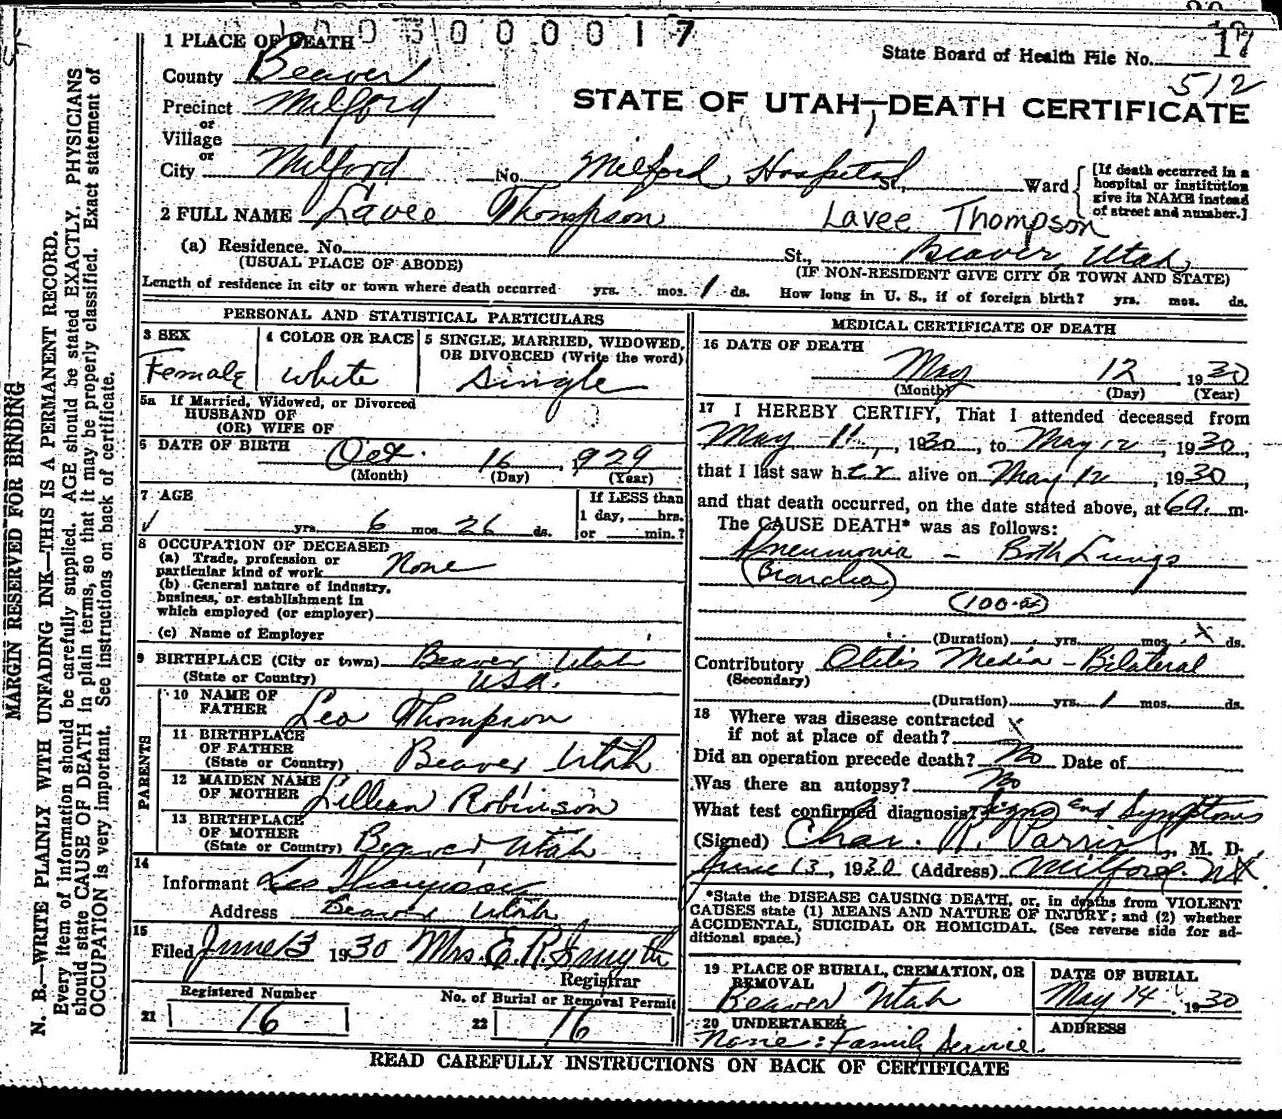 1003000017
17
State Board of Health File No. 17
512
STATE OF UTAH—DEATH CERTIFICATE
1 PLACE OF DEATH
County Beaver
Precinct Milford
or
Village
or
City Milford No. Milford Hospital St., Ward
[If death occurred in a hospital or institution give its NAME instead of street and number.]
2 FULL NAME Lavee Thompson Lavee Thompson
(a) Residence. No. St., Beaver, Utah
(USUAL PLACE OF ABODE) (IF NON-RESIDENT GIVE CITY OR TOWN AND STATE)
Length of residence in city or town where death occurred yrs. mos. 1 ds. How long in U. S., if of foreign birth? yrs. mos. ds.
PERSONAL AND STATISTICAL PARTICULARS
3 SEX
Female
4 COLOR OR RACE
White
5 SINGLE, MARRIED, WIDOWED, OR DIVORCED (Write the word)
Single
5a If Married, Widowed, or Divorced
HUSBAND OF
(OR) WIFE OF
6 DATE OF BIRTH Oct. 16, 929
(Month) (Day) (Year)
7 AGE
yrs. 6 mos. 26 ds.
If LESS than
1 day, hrs.
or min.?
8 OCCUPATION OF DECEASED
(a) Trade, profession or
particular kind of work None
(b) General nature of industry,
business, or establishment in
which employed (or employer)
(c) Name of Employer
9 BIRTHPLACE (City or town) Beaver Utah
(State or Country) USA.
PARENTS
10 NAME OF
FATHER Leo Thompson
11 BIRTHPLACE
OF FATHER
(State or Country) Beaver Utah
12 MAIDEN NAME
OF MOTHER Lillian Robinson
13 BIRTHPLACE
OF MOTHER
(State or Country) Beaver, Utah
14
Informant Leo Thompson
Address Beaver Utah
15
Filed June 13 1930 Mrs. E. R. Smyth
Registrar
Registered Number
21 16
No. of Burial or Removal Permit
22 16
MEDICAL CERTIFICATE OF DEATH
16 DATE OF DEATH
May 12, 1930
(Month) (Day) (Year)
17 I HEREBY CERTIFY, That I attended deceased from
May 11, 1930, to May 12, 1930,
that I last saw her alive on May 12, 1930,
and that death occurred, on the date stated above, at 6 a. m.
The CAUSE DEATH* was as follows:
Pneumonia - Both Lungs
(100-a)
(Duration) yrs. mos. x ds.
Contributory Otitis Media - Bilateral
(Secondary)
(Duration) yrs. 1 mos. ds.
18 Where was disease contracted
if not at place of death? x
Did an operation precede death? No Date of
Was there an autopsy? No
What test confirmed diagnosis? Signs and Symptoms
(Signed) Chas. , M. D.
June 13, 1930 (Address) Milford. Ut.
*State the DISEASE CAUSING DEATH, or, in deaths from VIOLENT
CAUSES state (1) MEANS AND NATURE OF INJURY; and (2) whether
ACCIDENTAL, SUICIDAL OR HOMICIDAL. (See reverse side for ad-
ditional space.)
19 PLACE OF BURIAL, CREMATION, OR
REMOVAL
Beaver Utah
DATE OF BURIAL
May 14, 1930
20 UNDERTAKER
None: Family Service.
ADDRESS
READ CAREFULLY INSTRUCTIONS ON BACK OF CERTIFICATE
MARGIN RESERVED FOR BINDING
N. B.—WRITE PLAINLY WITH UNFADING INK—THIS IS A PERMANENT RECORD.
Every item of information should be carefully supplied. AGE should be stated EXACTLY. PHYSICIANS
should state CAUSE OF DEATH in plain terms, so that it may be properly classified. Exact statement of
OCCUPATION is very important. See instructions on back of certificate.